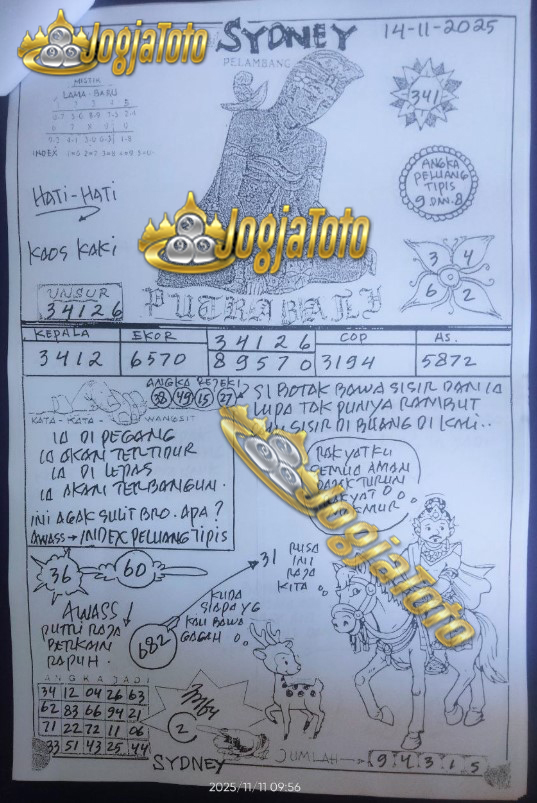 JogjaToto
SYDNEY
14-11-2025
PELAMBANG
MISTIK
LAMA - BARU
341
HATI-HATI
KAOS KAKI
ANGKA
PELUANG
TIPIS
9 DAN 8
3 4
6 2
JogjaToto
UNSUR
34126
PUTRA BALI
KEPALA EKOR 34126 COP AS.
3412 6570 89570 3194 5872
ANGKA REJEKI
38 49 15 27
KATA-KATA- WANGSIT
IA DI PEGANG
IA AKAN TERTIDUR
IA DI LEPAS
IA AKAN TERBANGUN.
INI AGAK SULIT BRO. APA?
AWASS → INDEX PELUANG TIPIS
SI BOTAK BAWA SISIR DAN IA
LUPA TAK PUNYA RAMBUT
SISIR DI BUANG DI KALI..
RAKYATKU
SEMUA AMAN
JogjaToto
36
60
31
RUSA
INI
RAJA
KITA
AWASS!
PUTRI RAJA
RAPUH.
682
KUDA
SIAPA YG
KAU BAWA
GAGAH
ANGKA JADI
34 12 04 26 63
62 83 66 94 21
71 22 72 11 06
33 51 43 25 44
2
SYDNEY
JUMLAH → 9 4 3 1 5
2025/11/11 09:56